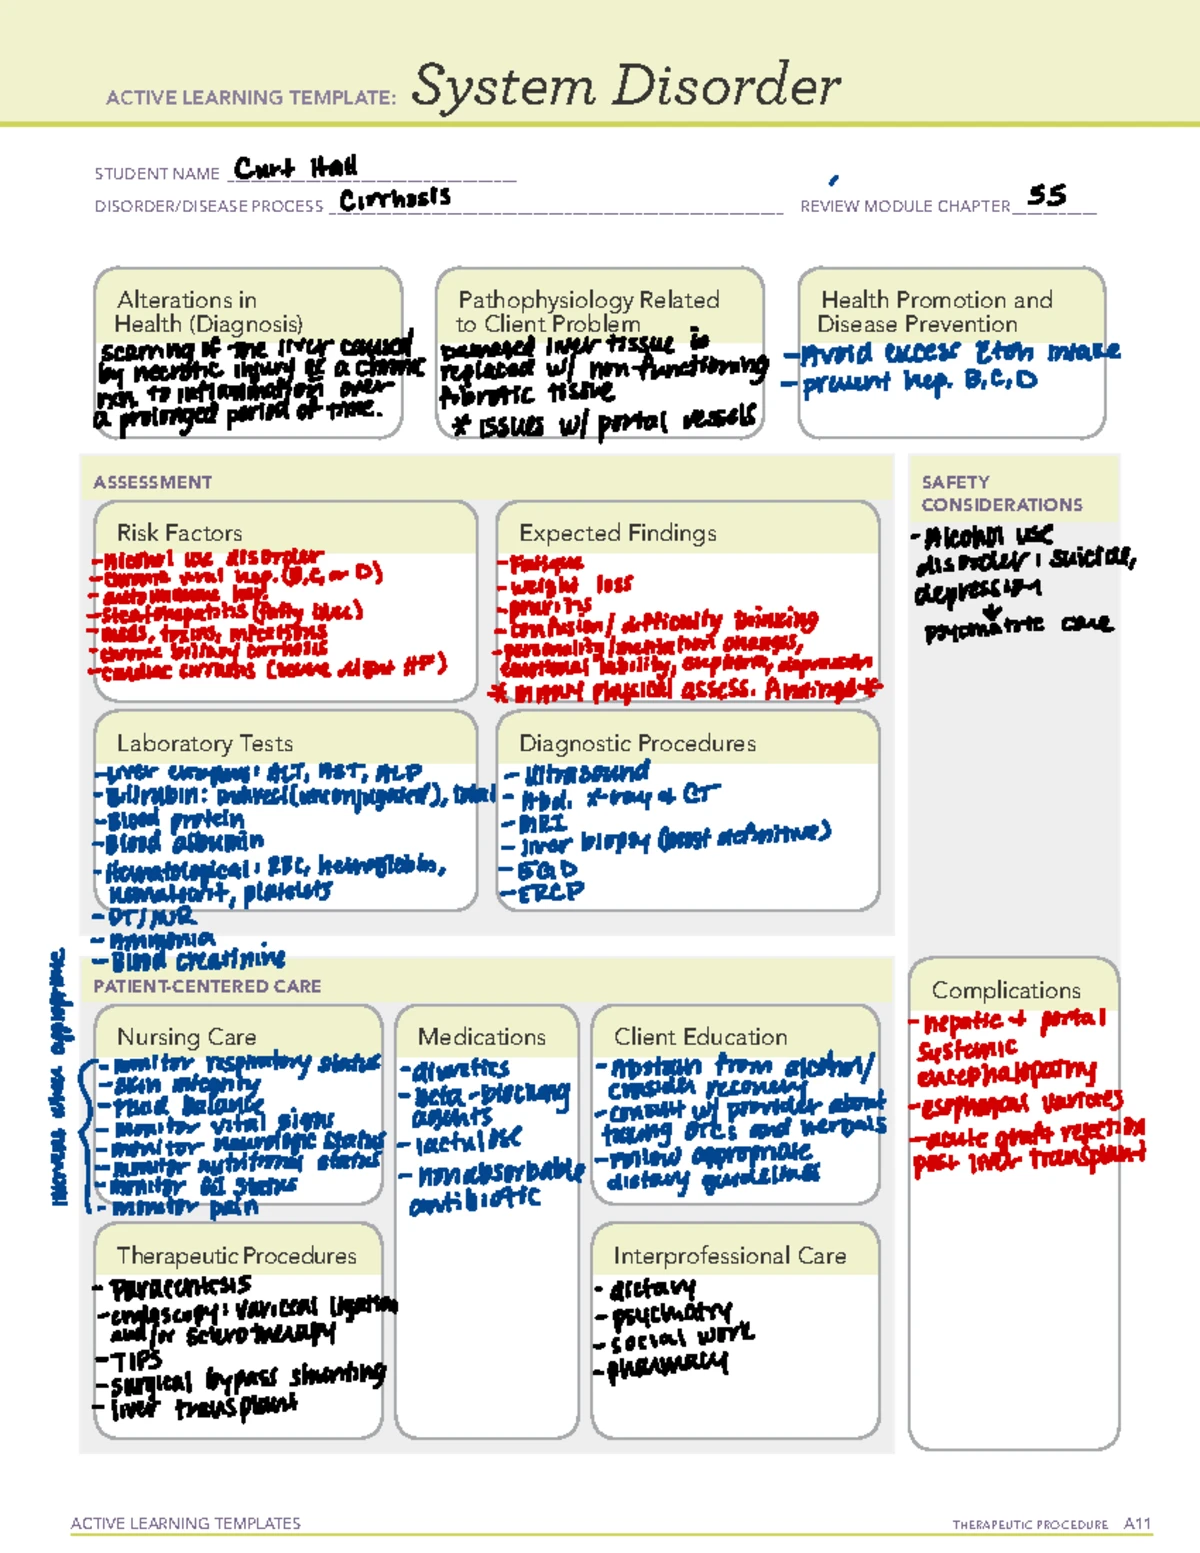 ACTIVE LEARNING TEMPLATE: System Disorder
STUDENT NAME Curt Hall
DISORDER/DISEASE PROCESS Cirrhosis
REVIEW MODULE CHAPTER 55
Alterations in
Health (Diagnosis)
scarring of the liver caused
by necrotic injury or a chronic
rxn to inflammation over
a prolonged period of time.
Pathophysiology Related
to Client Problem
Damaged liver tissue is
replaced w/ non-functioning
fibrotic tissue
* issues w/ portal vessels
Health Promotion and
Disease Prevention
- Avoid excess Etoh intake
- prevent hep. B, C, D
ASSESSMENT
SAFETY
CONSIDERATIONS
- Alcohol use
disorder: suicide,
depression
↓
psychiatric care
Risk Factors
- Alcohol use disorder
- chronic viral hep. (B, C, or D)
- autoimmune hep.
- steatohepatitis (fatty liver)
- meds, toxins, infections
- chronic biliary cirrhosis
- cardiac cirrhosis (severe right HF)
Expected Findings
- Fatigue
- weight loss
- pruritis
- confusion/ difficulty thinking
- personality/mentation changes,
emotional lability, euphoria, depression
* many physical assess. findings *
Laboratory Tests
- Liver enzymes: ALT, AST, ALP
- Bilirubin: indirect (unconjugated), total
- Blood protein
- Blood albumin
- Hematological: RBC, hemoglobin,
hematocrit, platelets
- PT/INR
- Ammonia
- Blood creatinine
Diagnostic Procedures
- Ultrasound
- Abd. x-ray or CT
- MRI
- liver biopsy (most definitive)
- EGD
- ERCP
PATIENT-CENTERED CARE
Nursing Care
- monitor respiratory status
- skin integrity
- fluid balance
- monitor vital signs
- monitor neurologic status
- monitor nutritional status
- monitor GI status
- monitor pain
when appropriate
Medications
- diuretics
- Beta-blocking
agents
- lactulose
- nonabsorbable
antibiotic
Client Education
- Abstain from alcohol/
consider recovery
- consult w/ provider about
taking OTCs and herbals
- Follow appropriate
dietary guidelines
Complications
- hepatic + portal
systemic
encephalopathy
- esophageal varices
- acute graft rejection
post liver transplant
Therapeutic Procedures
- Paracentesis
- endoscopy: variceal ligation
and/or sclerotherapy
- TIPS
- surgical bypass shunting
- liver transplant
Interprofessional Care
- dietary
- psychiatry
- social work
- pharmacy
ACTIVE LEARNING TEMPLATES
THERAPEUTIC PROCEDURE A11